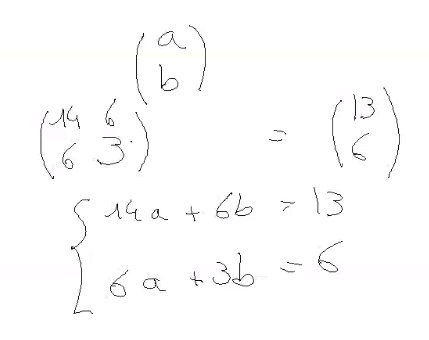 (a
b)
(14 6
6 3) = (13
6)
{ 14a + 6b = 13
6a + 3b = 6